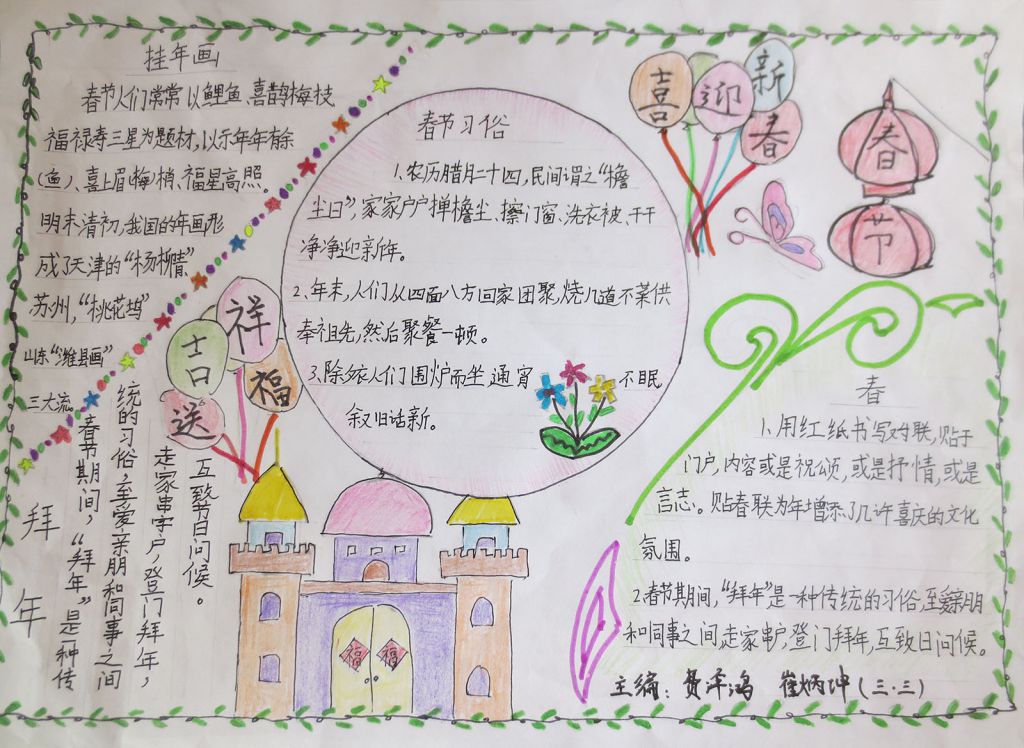 挂年画
春节人们常常以鲤鱼、喜鹊梅枝
福禄寿三星为题材,以示年年有余
(鱼)、喜上眉(梅)梢、福星高照。
明末清初,我国的年画形
成了天津的“杨柳青”
苏州,“桃花坞”
山东“潍县画”
三大流
春节习俗
1、农历腊月二十四,民间谓之“檐
尘日”,家家户户掸檐尘、擦门窗、洗衣被、干干
净净迎新年。
2、年末,人们从四面八方回家团聚,烧几道不荤供
奉祖先,然后聚餐一顿。
3、除夕夜人们围炉而坐,通宵不眠
叙旧话新。
喜迎新春
春节
吉祥
送福
拜年
春节期间,“拜年”是一种传
统的习俗,至爱亲朋和同事之间
走家串字户,登门拜年,
互致节日问候。
福 福
春
1、用红纸书写对联,贴于
门户,内容或是祝颂,或是抒情,或是
言志。贴春联为年增添了几许喜庆的文化
氛围。
2、春节期间,“拜年”是一种传统的习俗,至爱亲朋
和同事之间,走家串户,登门拜年,互致日问候。
主编:费泽鸿 崔炳坤(三.三)